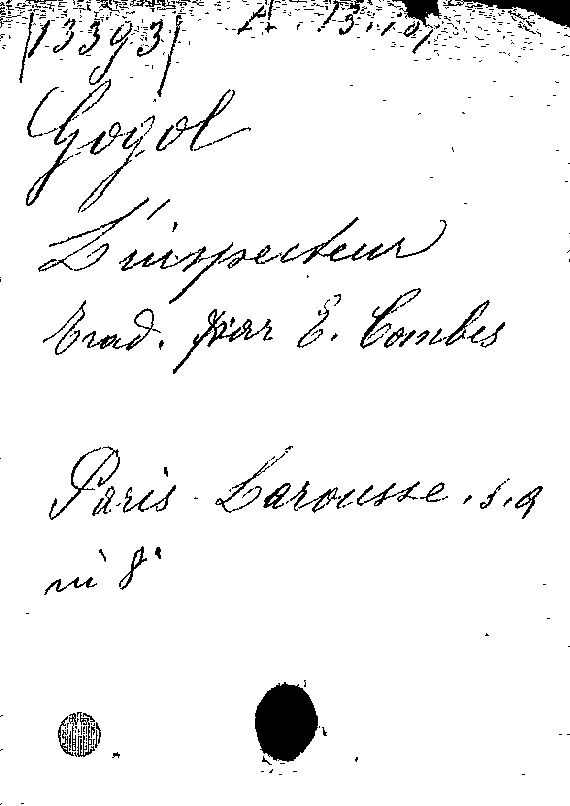 (13393) A. 13.101
Gogol
L'inspecteur
trad. par E. Combes
Paris Larousse. s.a
in 8°